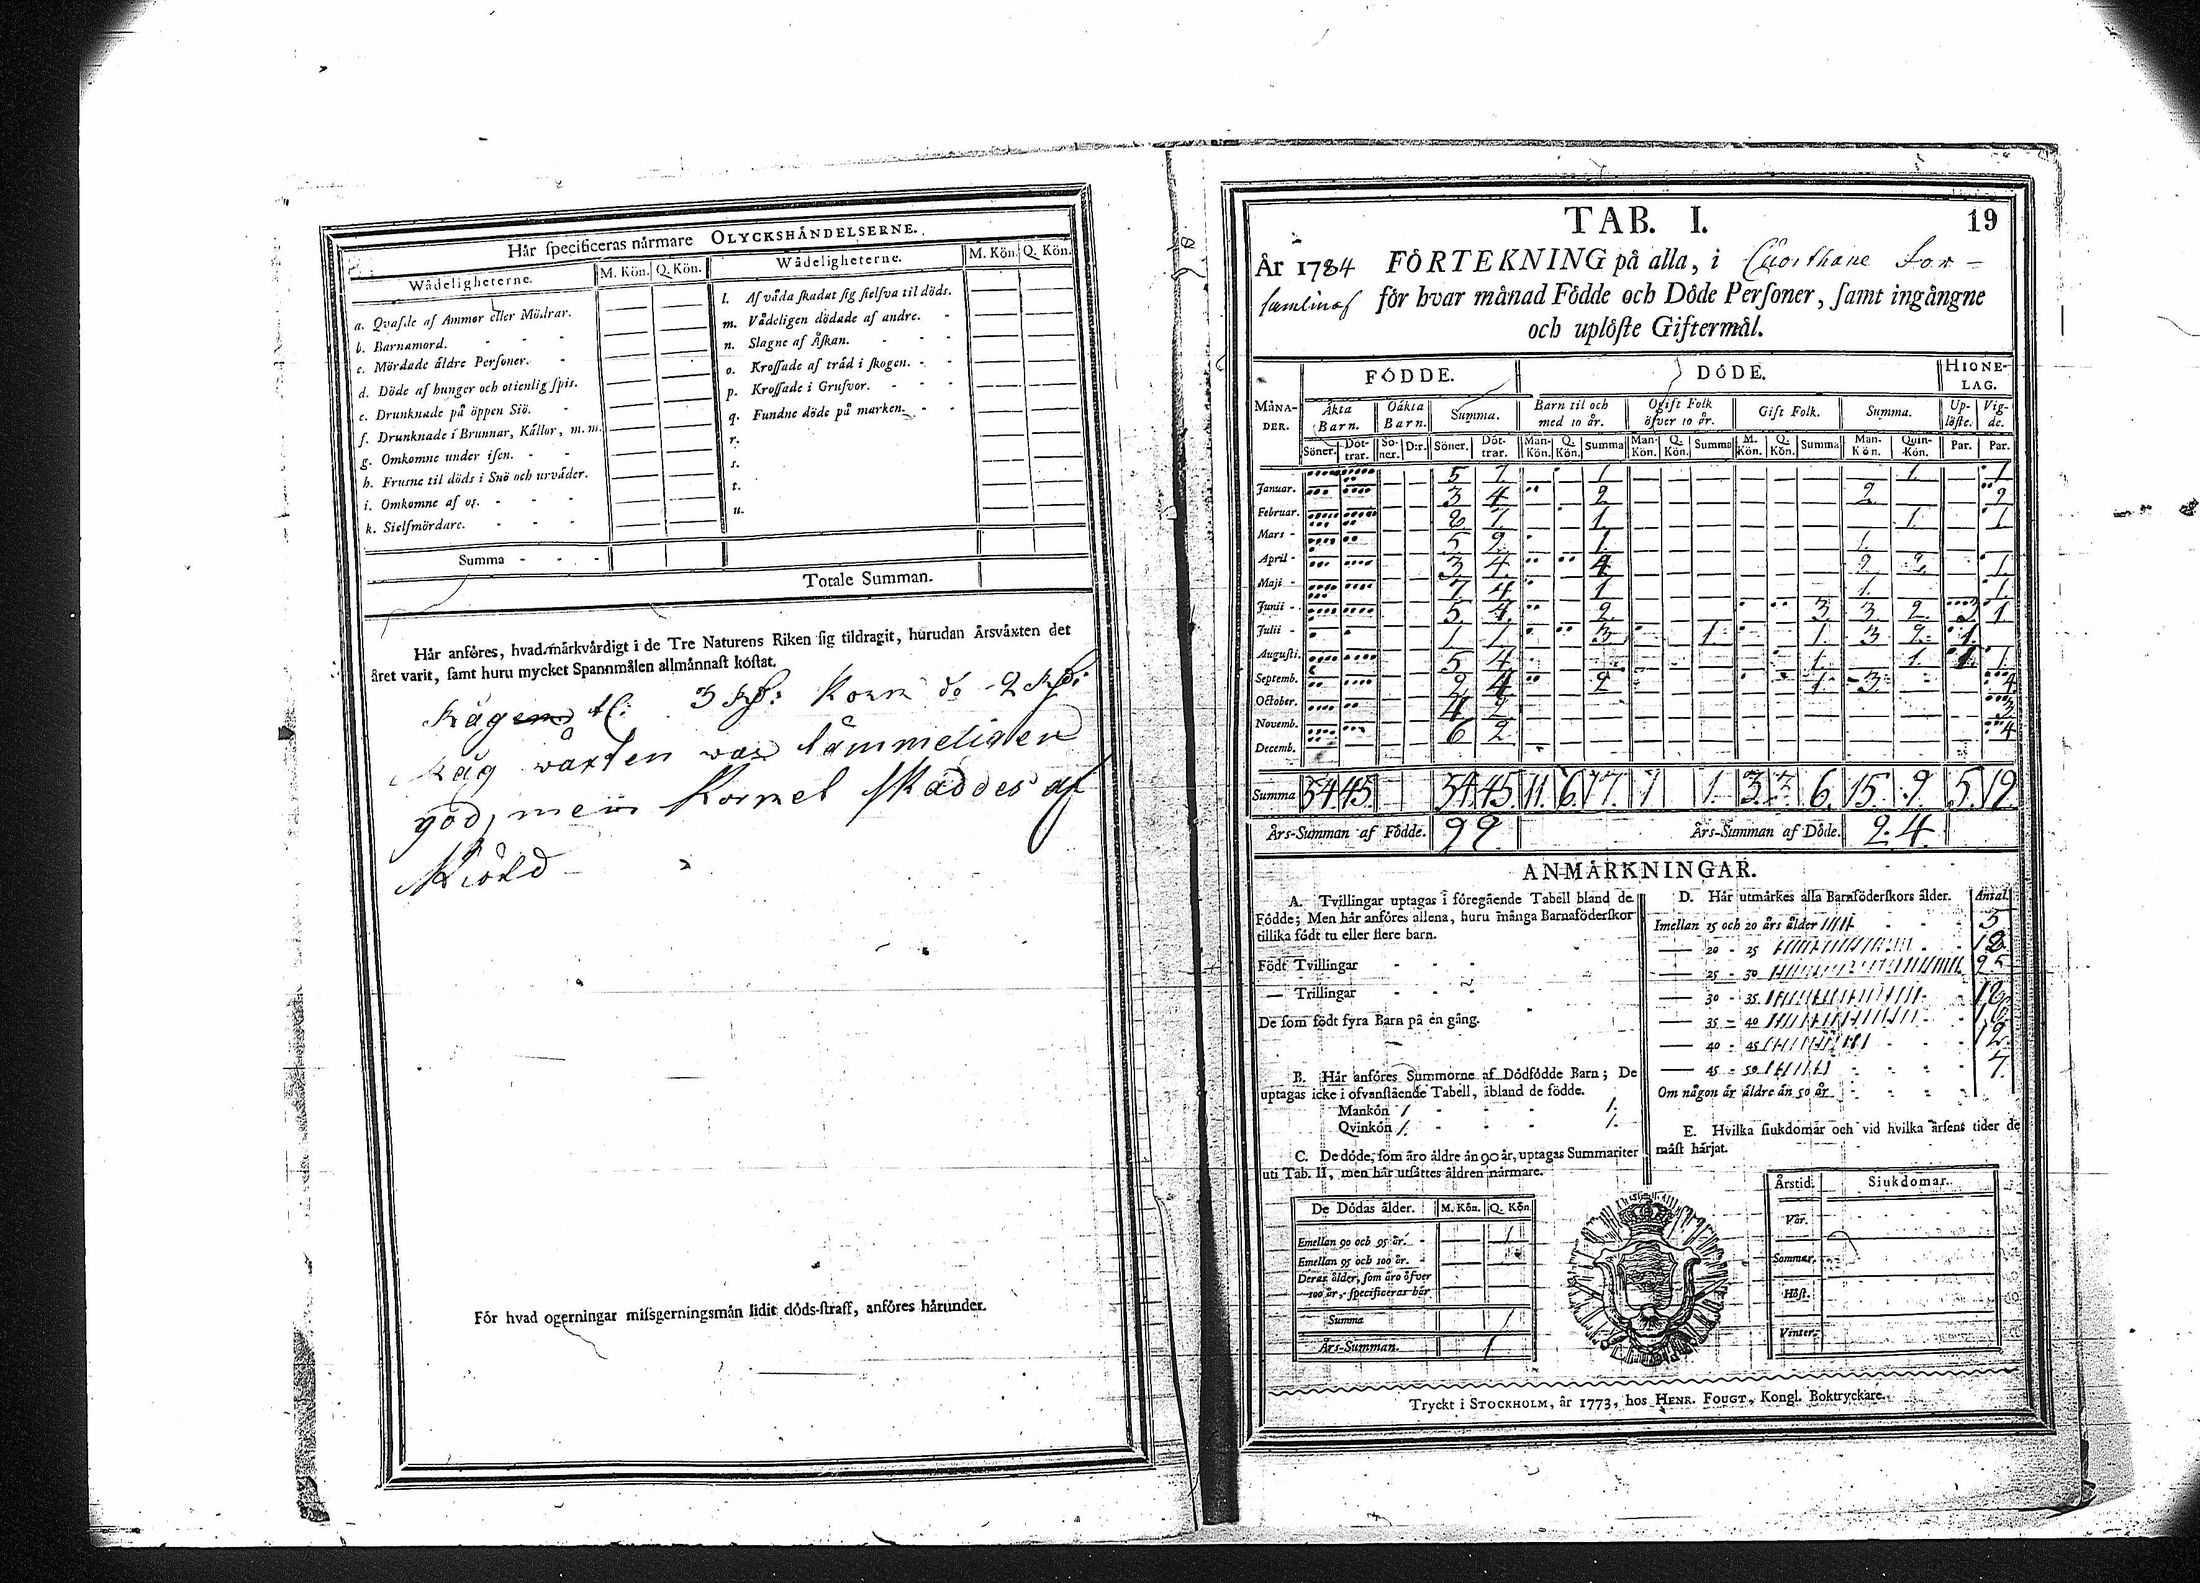 Här specificeras närmare OLYCKSHÄNDELSERNE.
Wådeligheterne. M. Kön. Q. Kön. Wådeligheterne. M. Kön. Q. Kön.
a. Qvafde af Ammor eller Mödrar. l. Af våda skadat sig sielfva til döds.
b. Barnamord. m. Vådeligen dödade af andre.
c. Mördade äldre Personer. n. Slagne af Åskan.
d. Döde af hunger och otienlig spis. o. Krossade af träd i skogen.
e. Drunknade på öppen Siö. p. Krossade i Grufvor.
f. Drunknade i Brunnar, Källor, m. m. q. Fundne döde på marken.
g. Omkomne under isen. r.
h. Frusne til döds i Snö och urväder. s.
i. Omkomne af os. t.
k. Sielfmördare. u.
Summa
Totale Summan.
Här anföres, hvad märkvärdigt i de Tre Naturens Riken sig tildragit, hurudan Årsväxten det
året varit, samt huru mycket Spannmålen allmännast kostat.
Korn do 2
Råg växten war tämmeligen
god, men Kornet skaddes af
Kiöld
För hvad ogerningar missgerningsmän lidit döds-straff, anföres härunder.
TAB. I. 19
År 1784 FÖRTEKNING på alla, i Cuorthane För-
samling för hvar månad Födde och Döde Personer, samt ingångne
och uplöste Giftermål.
MÅNADER. FÖDDE. DÖDE. HIONELAG.
Äkta Barn. Oäkta Barn. Summa. Barn til och med 10 år. Ogift Folk öfver 10 år. Gift Folk. Summa. Uplöste. Vigde.
Söner. Döttrar. Söner. D:r. Söner. Döttrar. Man-Kön. Q. Kön. Summa Man-Kön. Q. Kön. Summa M. Kön. Q. Kön. Summa Man-Kön. Quin-Kön. Par. Par.
Januar. 5 7 1 1 1
Februar. 3 4 2 2 2
Mars 8 7 1 1 1
April 5 2 1 1
Maji 3 4 4 2 2 1
Junii 7 4 1 1 1
Julii 5 4 2 3 3 2 3 1
Augusti. 1 1 3 1 1 3 2 1
Septemb. 5 4 1 1 1 1
October. 2 4 2 1 3 4
Novemb. 4 2 3
Decemb. 6 2 4
Summa 54 45 54 45 11 6 17 1 1 3 3 6 15 9 5 19
Års-Summan af Födde. 99 Års-Summan af Döde. 24
ANMÄRKNINGAR.
A. Tvillingar uptagas i föregående Tabell bland de
Födde; Men här anföres allena, huru många Barnaföderskor
tillika födt tu eller flere barn.
Födt Tvillingar
— Trillingar
De som födt fyra Barn på en gång.
B. Här anföres Summorne af Dödfödde Barn; De
uptagas icke i ofvanstående Tabell, ibland de födde.
Mankön / 1.
Qvinkön /. 1.
C. De döde, som äro äldre än 90 år, uptagas Summariter
uti Tab. II, men här utsättes åldren närmare.
De Dödas ålder. M. Kön. Q. Kön.
Emellan 90 och 95 år. 1
Emellan 95 och 100 år.
Deras ålder, som äro öfver
100 år, specificeras här
Summa 1
Års-Summan. 1
D. Här utmärkes alla Barnföderskors ålder. Antal
Imellan 15 och 20 års ålder 5
20 - 25 18
25 - 30 25
30 - 35
35 - 40 16
40 - 45 12
45 - 50 7
Om någon är äldre än 50 år
E. Hvilka siukdomar och vid hvilka årsens tider de
mäst härjat.
Årstid. Siukdomar.
Vår.
Sommar.
Höst.
Vinter.
Tryckt i STOCKHOLM, år 1773, hos HENR. FOUGT, Kongl. Boktryckare.